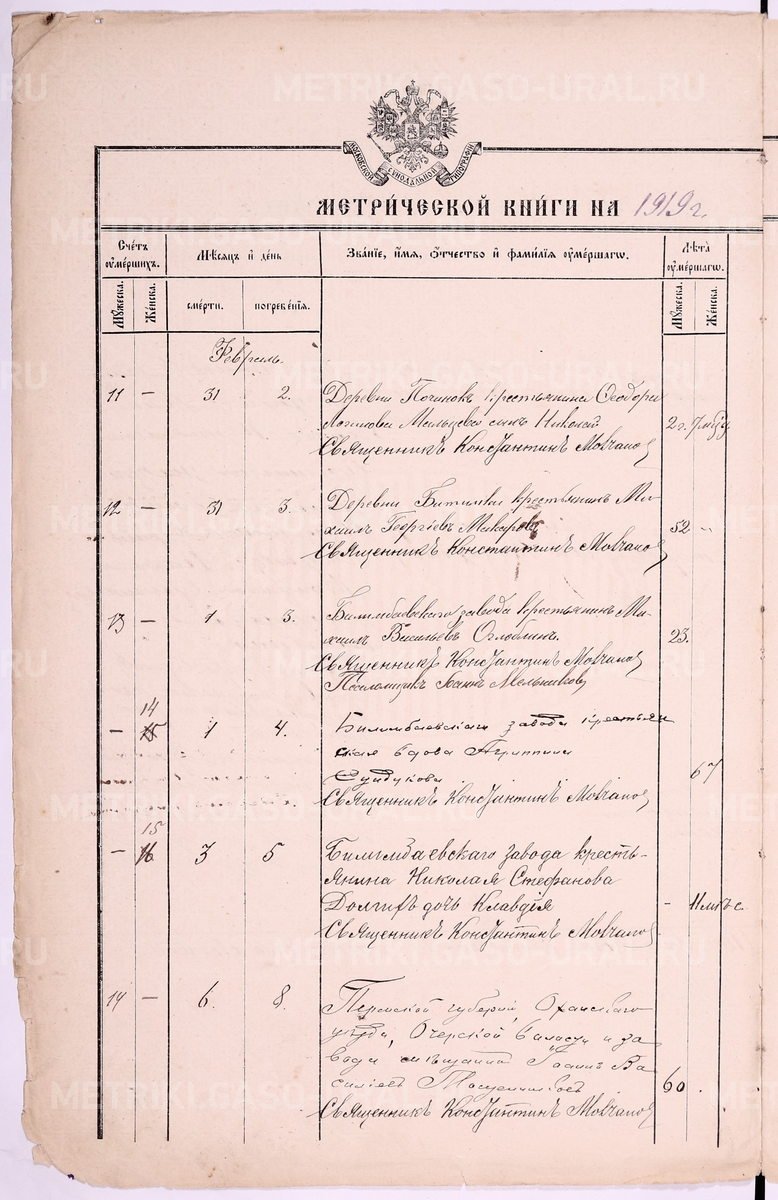 METRIKI.GASO-URAL.RU
МОСКОВСКОЙ СѴНОДАЛЬНОЙ ТИПОГРАФІИ
МЕТРИ́ЧЕСКОЙ КНИ́ГИ НА 1919 г.
Сче́тъ ᲂу҆ме́ршихъ.
Мѣ́сяцъ и҆ де́нь
Зва́ніе, и҆́мя, ѻ҆́тчество и҆ фами́лія ᲂу҆ме́ршагѡ.
Лѣ́та ᲂу҆ме́ршагѡ.
Мꙋ́жеска.
Же́нска.
сме́рти.
погребе́нія.
Мꙋ́жеска.
Же́нска.
Февраль.
11 — 31 2. Деревни Починок крестьянина Ѳеодора
Логинова Мальцева сын Николай 2 г. 7 м
Священникъ Константинъ Мовчанов
12 — 31 3. Деревни Битимки крестьянинъ Ми-
хаилъ Георгіевъ Макаровъ 52 "
Священникъ Константинъ Мовчанов
13 — 1 3. Билимбаевскаго завода крестьянинъ Ми-
хаилъ Васильевъ Оглоблинъ. 23.
Священникъ Константинъ Мовчанов
Псаломщикъ Іоаннъ Мельников
14
— 15 1 4. Билимбаевскаго завода крестьян
ская вдова Агриппина
Сундукова 67
Священникъ Константинъ Мовчанов
15
— 16 3 5 Билимбаевскаго завода кресть-
янина Николая Стефанова
Долгихъ дочь Клавдія - 11 мѣс.
Священникъ Константинъ Мовчанов
14 — 6. 8. Пермской губерніи, Оханскаго
уѣзда, Очерской волости и за
вода мѣщанинъ Іоаннъ Ва
сильевъ 60 .
Священникъ Константинъ Мовчанов